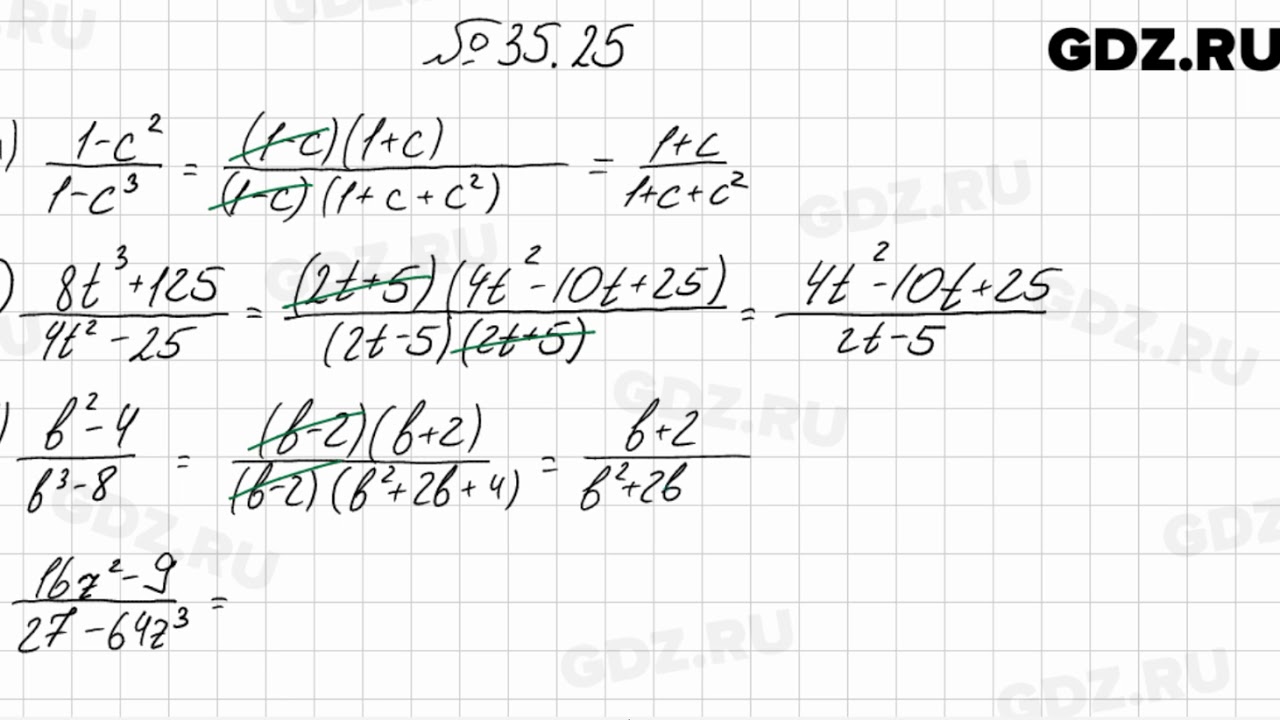 № 35.25
GDZ.RU
) (1-c²)/(1-c³) = ((1-c)(1+c))/((1-c)(1+c+c²)) = (1+c)/(1+c+c²)
) (8t³+125)/(4t²-25) = ((2t+5)(4t²-10t+25))/((2t-5)(2t+5)) = (4t²-10t+25)/(2t-5)
) (в²-4)/(в³-8) = ((в-2)(в+2))/((в-2)(в²+2в+4)) = (в+2)/(в²+2в
(16z²-9)/(27-64z³) =